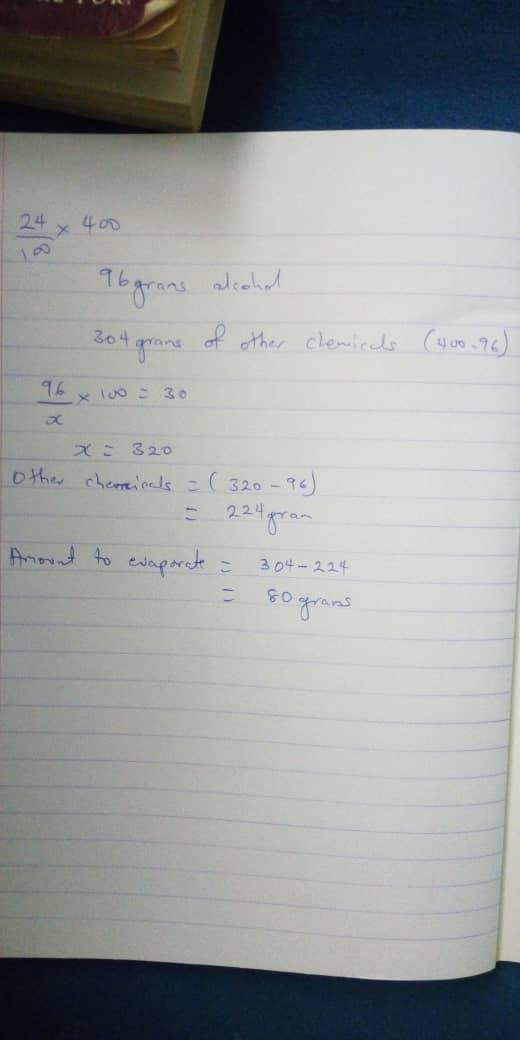 24/100 × 400
96 grams alcohol
304 grams of other chemicals (400-96)
96/x × 100 = 30
x = 320
Other chemicals = (320 - 96)
= 224 gram
Amount to evaporate = 304 - 224
= 80 grams